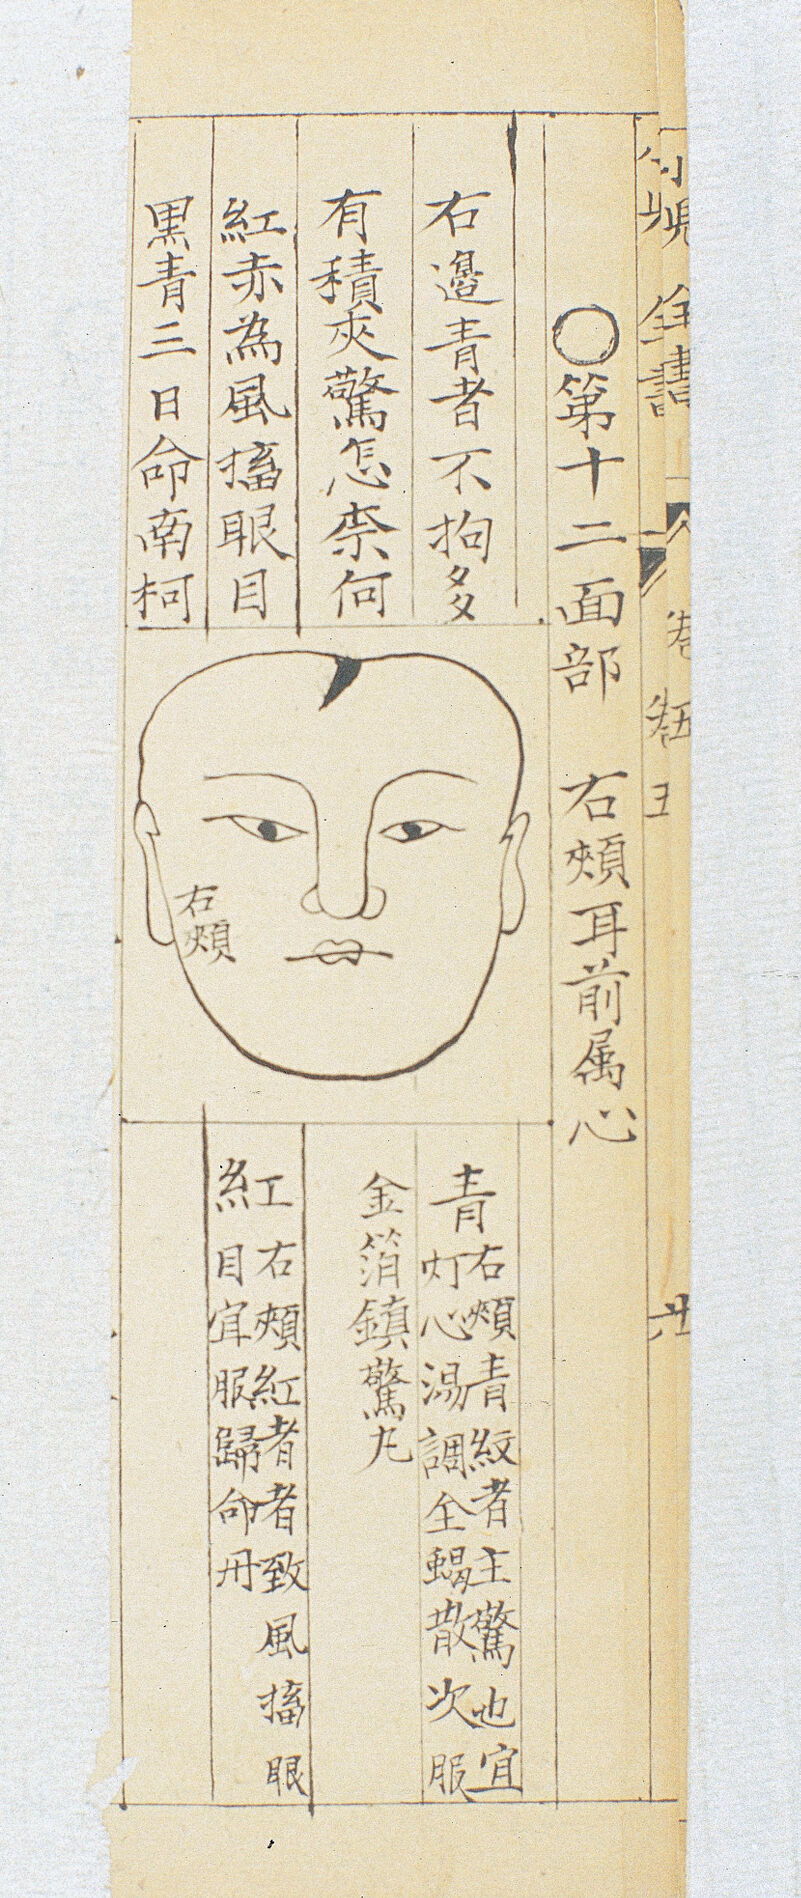 ○第十二面部　右頰耳前属心
右邉青者不拘多
有積夾驚怎柰何
紅赤為風搐眼目
黑青三日命南柯
右頰
青
右頰青紋者主驚也宜
灯心湯調全蝎散次服
金箔鎮驚丸
紅
右頰紅者者致風搐眼
目宜服歸命丹